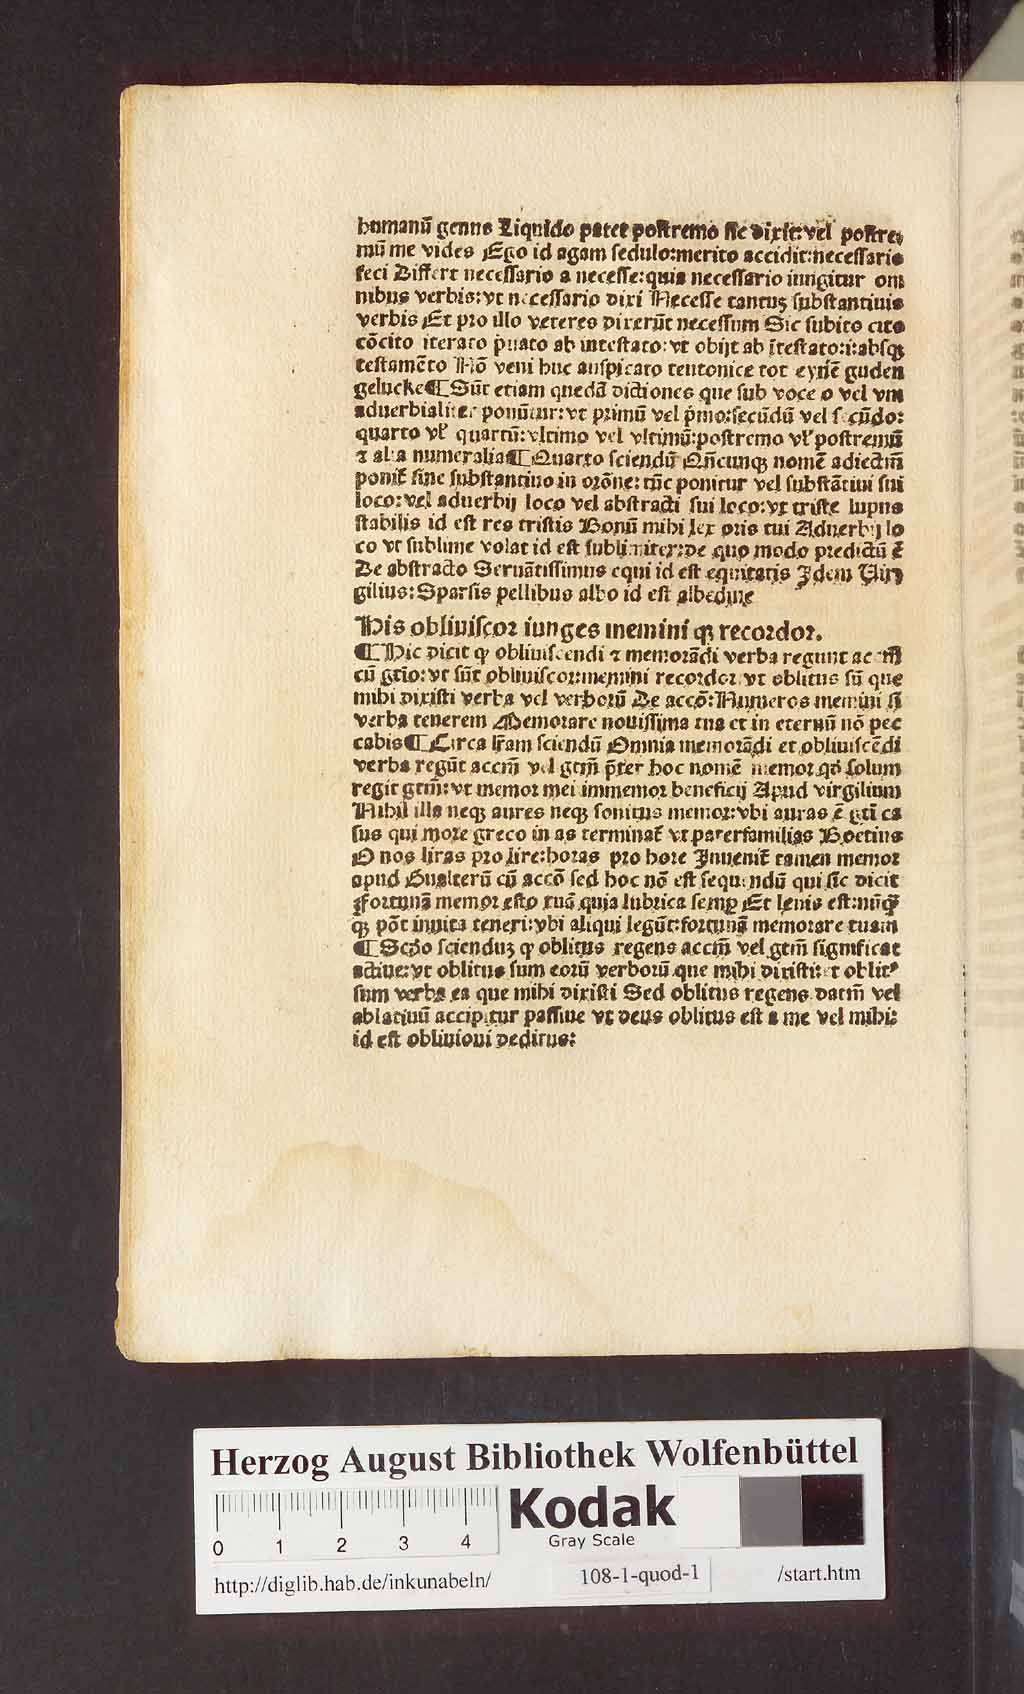 humanū genus Liquido patet postremo sic dixit: vel postre
mū me vides Ego id agam sedulo: merito accidit: necessario
feci Differt necessario a necesse: quia necessario iungitur om
nibus verbis: vt necessario dixi Necesse tantuꝫ substantiuis
verbis Et pro illo veteres dixerūt necessum Sic subito cito
cōcito iterato p̄uato ab intestato: vt obijt ab ītestato: i: absqꝫ
testamēto Nō veni huc auspicato teutonice tot eynē guden
gelucke ¶ Sūt etiam quedā dictiones que sub voce o vel vm
aduerbialiter ponūtur: vt primū vel p̄mo: secūdū vel secūdo:
quarto vl̓ quartū: vltimo vel vltimū: postremo vl̓ postremū
⁊ alia numeralia ¶ Quarto sciendū Qn̄cunqꝫ nomē adiectiū
ponit̄ sine substantiuo in orōne: tūc ponitur vel substātiui sui
loco: vel aduerbij loco vel abstracti sui loco: vt triste lupus
stabilis id est res tristis Bonū mihi lex oris tui Aduerbij lo
co vt sublime volat id est sublimiter: de quo modo predictū ē
De abstracto Seruātissimus equi id est equitatis Idem Uir
gilius: Sparsis pellibus albo id est albedine
His obliuiscor iunges memini qꝫ recordor.
¶ Hic dicit ꝙ obliuiscendi ⁊ memorādi verba regunt accm̄
cū gtīo: vt sūt obliuiscor: memini recordor vt oblitus sū que
mihi dixisti verba vel verborū De accō: Numeros memini si
verba tenerem Memorare nouissima tua et in eternū nō pec
cabis ¶ Circa lr̄am sciendū Omnia memorādi et obliuiscēdi
verba regūt accm̄ vel gtm̄ p̄ter hoc nomē memor qd̓ solum
regit gtm̄: vt memor mei immemor beneficij Apud virgilium
Nihil illa neqꝫ aures neqꝫ sonitus memor: vbi auras ē gtī ca
sus qui more greco in as terminat̄ vt paterfamilias Boetius
O nos liras pro lire: horas pro hore Inuenit̄ tamen memor
apud Gualterū cū accō sed hoc nō est sequendū qui sic dicit
Fortunā memor esto tuā quia lubrica semꝑ Et lenis est: nūꝙ̄
qꝫ pōt inuita teneri: vbi aliqui legūt: fortunā memorare tuam
¶ Scd̓o scienduꝫ ꝙ oblitus regens accm̄ vel gtm̄ significat
actiue: vt oblitus sum eorū verborū que mihi dixisti: et oblitꝰ
sum verba ea que mihi dixisti Sed oblitus regens datm̄ vel
ablatiuū accipitur passiue vt deus oblitus est a me vel mihi:
id est obliuioni deditus:
Herzog August Bibliothek Wolfenbüttel
Kodak
Gray Scale
0 1 2 3 4
http://diglib.hab.de/inkunabeln/ 108-1-quod-1 /start.htm